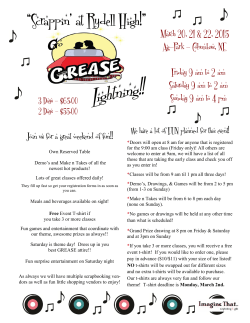 "Scrappin' at Rydell High!"
March 20, 21 & 22, 2015
Go
GREASE
lightning!!
Friday 9 am to 2 am
Saturday 9 am to 2 am
Sunday 9 am to 4 pm
3 Days - $65.00
2 Days - $55.00
Join us for a great weekend of fun!!
Own Reserved Table
Demo's and Make n Takes of all the
newest hot products!
Lots of great classes offered daily!
They fill up fast so get your registration forms in as soon as
you can.
Meals and beverages available on sight!
Free Event T-shirt if
you take 3 or more classes
Fun games and entertainment that coordinate with
our theme, awesome prizes as always!!
Saturday is theme day! Dress up in you
best GREASE attire!!
Fun surprise entertainment on Saturday night
As always we will have multiple scrapbooking ven-
dors as well as fun little chopping vendors to enjoy!
We have a lot of FUN planned for this event!
*Doors will open at 8 am for anyone that is registered
for the 9:00 am class (Friday only)! All others are
welcome to enter at 9am, we will have a list of all
those that are taking the early class and check you off
as you enter in!
*Classes will be from 9 am til 1 pm all three days!
*Demo's, Drawings, & Games will be from 2 to 5 pm
(from 1-3 on Sunday)
*Make n Takes will be from 6 to 8 pm each day
(none on Sunday)
*No games or drawings will be held at any other time
than what is scheduled!
*Grand Prize drawing at 8 pm on Friday & Saturday
and at 3pm on Sunday
*If you take 3 or more classes, you will receive a free
event t-shirt! If you would like to order one, please
pay in advance ($10/$11) with your size of tee listed!
NO t-shirts will be swapped out for different sizes
and no extra t-shirts will be available to purchase.
Our t-shirts are always very fun and follow our
theme! T-shirt deadline is Monday, March 2nd.
Imagine That.